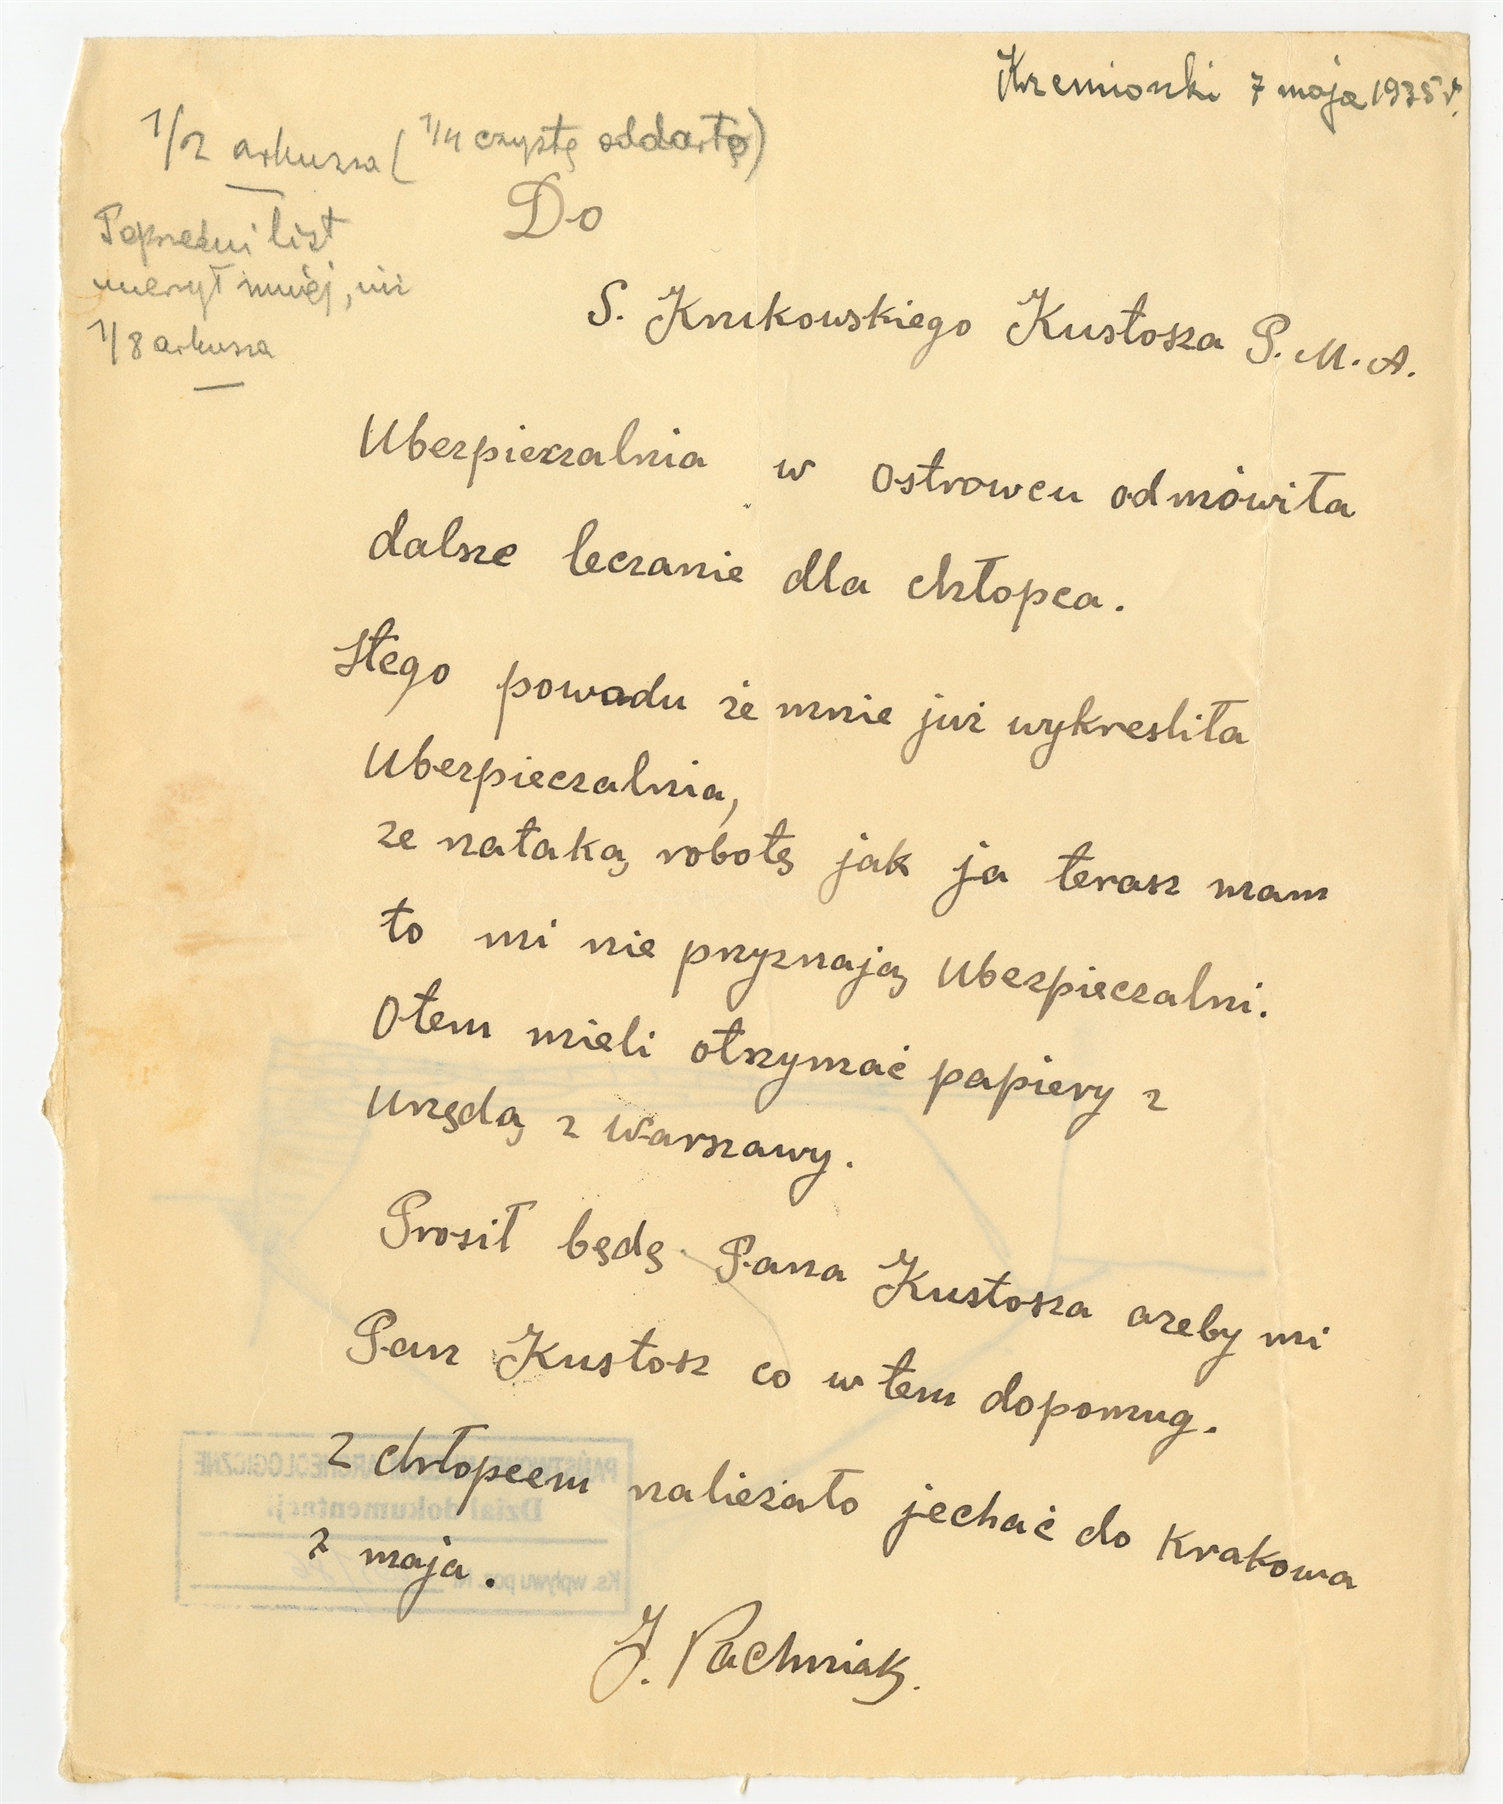 Krzemionki 7 maja 1935 r.
1/2 arkusza (1/4 czystą oddartą)
Do
Poprzedni list
mierzył mniej, niż
1/8 arkusza
S. Krukowskiego Kustosza P. M. A.
Ubezpieczalnia w Ostrowcu odmówiła
dalsze leczanie dla chłopca.
Stego powodu że mnie już wykreśliła
Ubezpieczalnia,
ze nataką robotę jak ja terasz mam
to mi nie przyznają Ubezpieczalni.
Otem mieli otrzymać papiery z
Urzędą z Warszawy.
Prosił będę Pana Kustosza azeby mi
Pan Kustosz co w tem dopomug.
Z chłopcem należało jechać do Krakowa
7 maja.
J. Pachniak.
PAŃSTWOWE MUZEUM ARCHEOLOGICZNE
Dział dokumentacji
Ks. wpływu poz. Nr